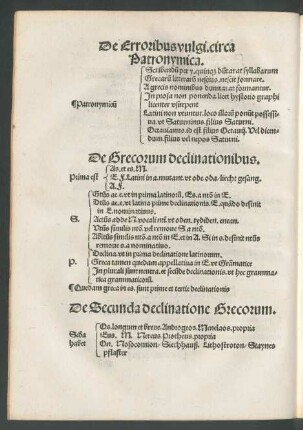 De Erroribus vulgi.circa
Patronymica.
Scribendū per y.quinqz dūtaxat syllabarum
Grecarū literarū nescius, nescit formare.
A grecis nominibus duntaxat formantur.
In prosa non ponenda.licet hystorio graphi
¶Patronymicū
licenter vsurpent
Latini non vtuntur.loco illorū ponūt possessi
ua.vt Saturninus.filius Saturni.
Octauianus.id est filius Octauij. Vel dicen
dum.filius vel nepos Saturni.
De Grecorum declinationibus.
As.et es. M.
Prima est
E. F. Latini in a.mutant.vt ode.oda.liecht gesang.
A. F.
Gtūs ae.e.vt in prima latinorū. Es.a nō in E.
Dtūs ae.e.vt latina prime declinationis. E.quādo desinit
in E.nominatiuus.
S.
Actūs addit N.vocali nti.vt oden.
Vtūs similis ntō.vel remoue S a ntō.
Abltūs similis ntō.a ntō in E.et in A. Si in s.desinit ntūs
remoue s.a nominatiuo.
Declina.vt in prima declinatione latinorum.
P.
Greca tamen quedam.appellatiua in E.vt Gramatice
In plurali sunt neutra.et secūde declinationis.vt hec gramma
tica grammaticorū.
¶Quedam greca in es.sunt prime et tertie declinationis
De Secunda declinatione Grecorum.
Os.longum et breue. Androgeos. Menelaos.propria
Scḋa
Eus. M. Nereus. Protheus.propria
habet
On. N. Nosocomion. Siechhauß. Lithostroton. Staynes
pflaster